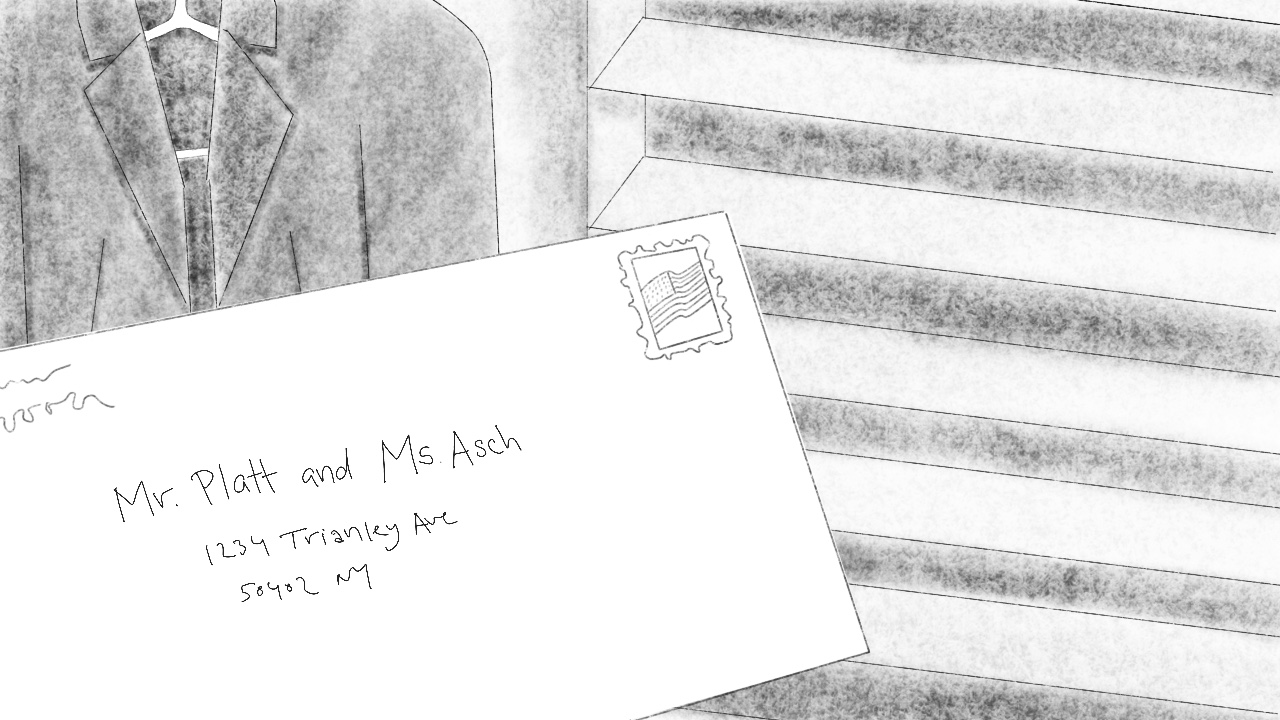 Mr. Platt and Ms. Asch
1234 Trianley Ave
50402 NY